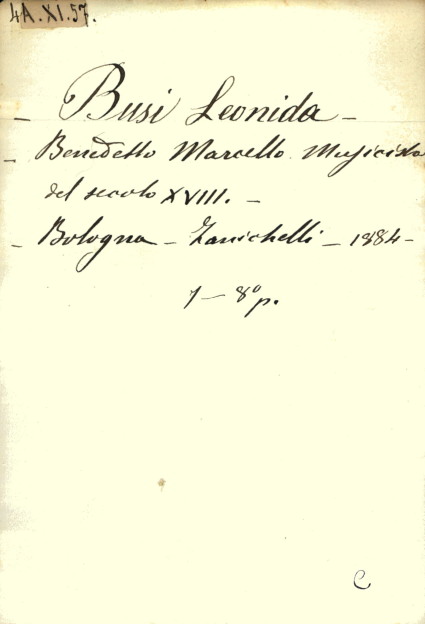 4A.XI.57.
– Busi Leonida –
– Benedetto Marcello Musicista
del secolo XVIII. –
– Bologna – Zanichelli – 1884 –
1 – 8º p.
C